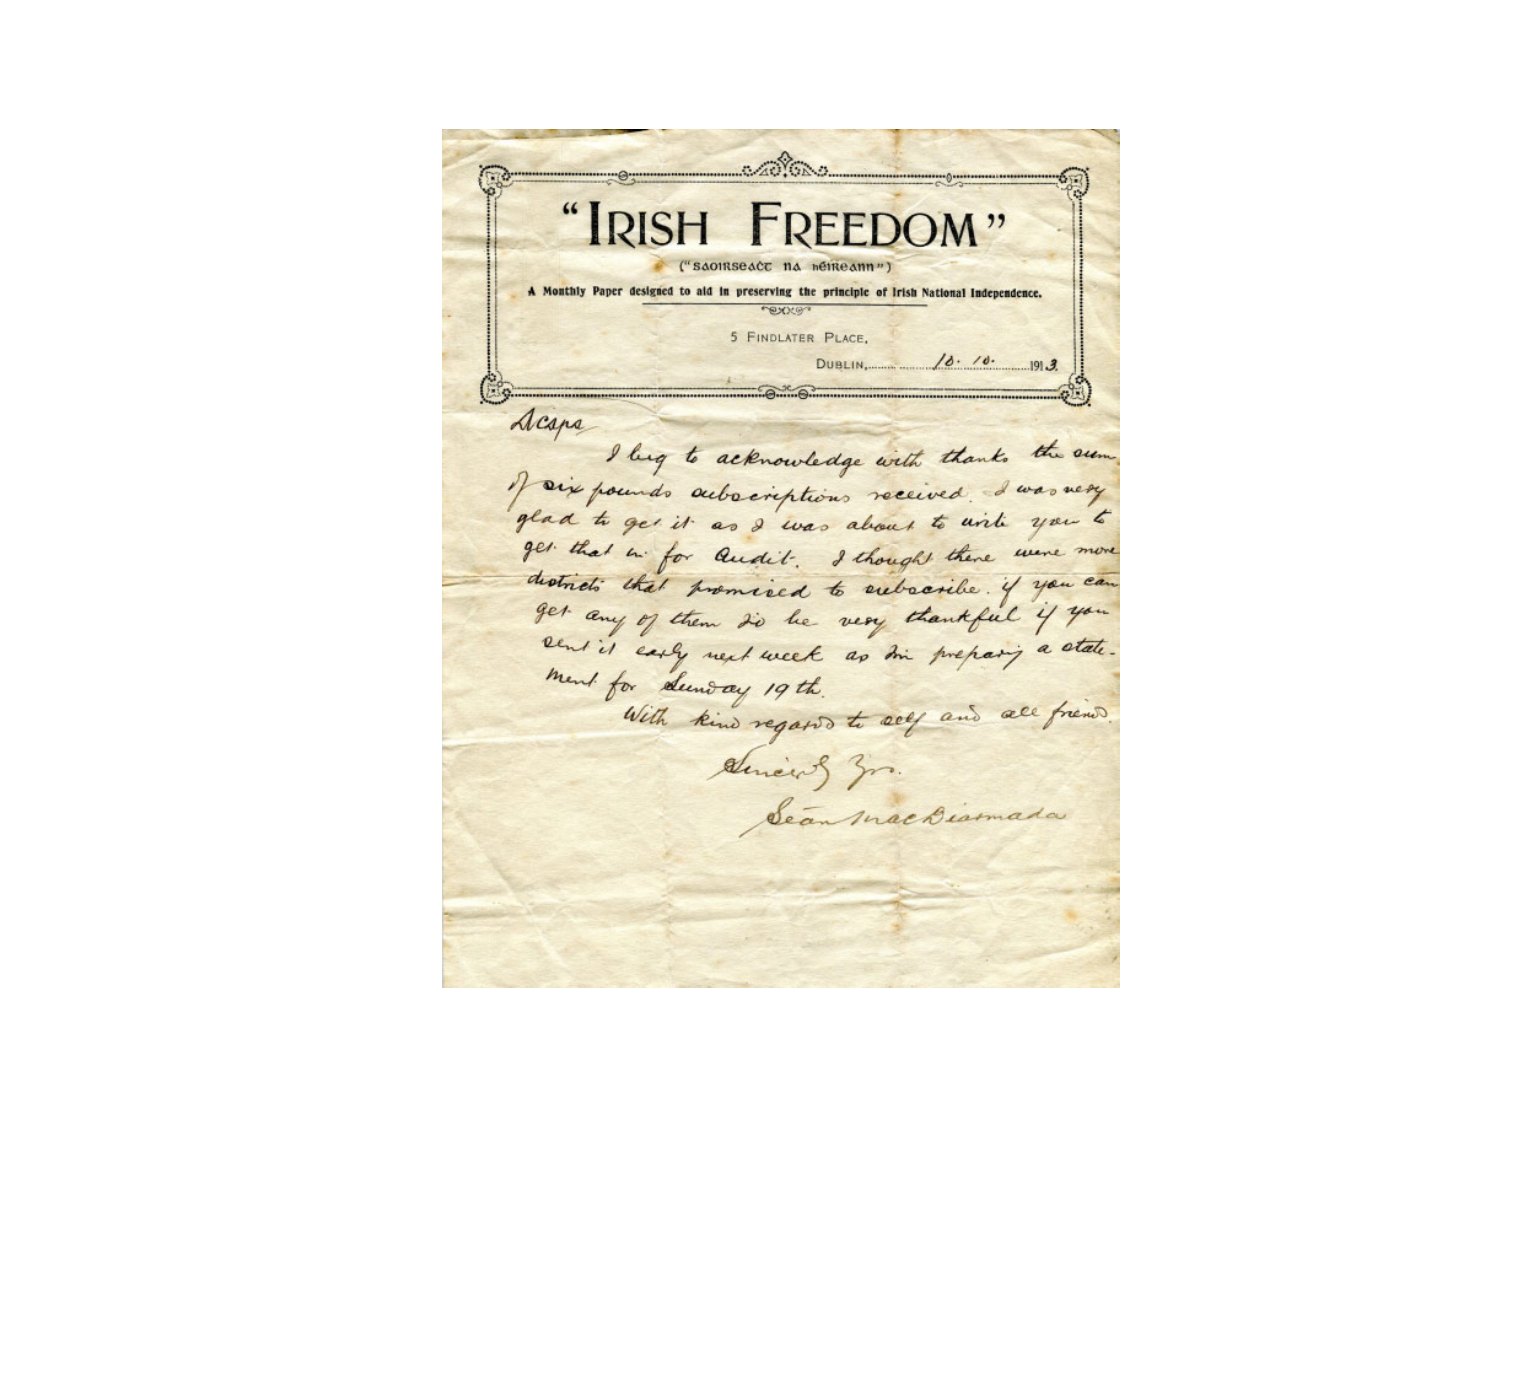 "IRISH FREEDOM"
("saoirseaċt na héireann")
A Monthly Paper designed to aid in preserving the principle of Irish National Independence.
5 FINDLATER PLACE,
DUBLIN, 10. 10. 1913.
I beg to acknowledge with thanks the sum
of six pounds subscriptions received. I was very
glad to get it as I was about to write you to
get that in for Audit. I thought there were more
districts that promised to subscribe. if you can
get any of them I'd be very thankful if you
sent it early next week as I'm preparing a state-
ment for Sunday 19th.
With kind regards to self and all friends.
Sincerely Yrs.
Seán Mac Diarmada